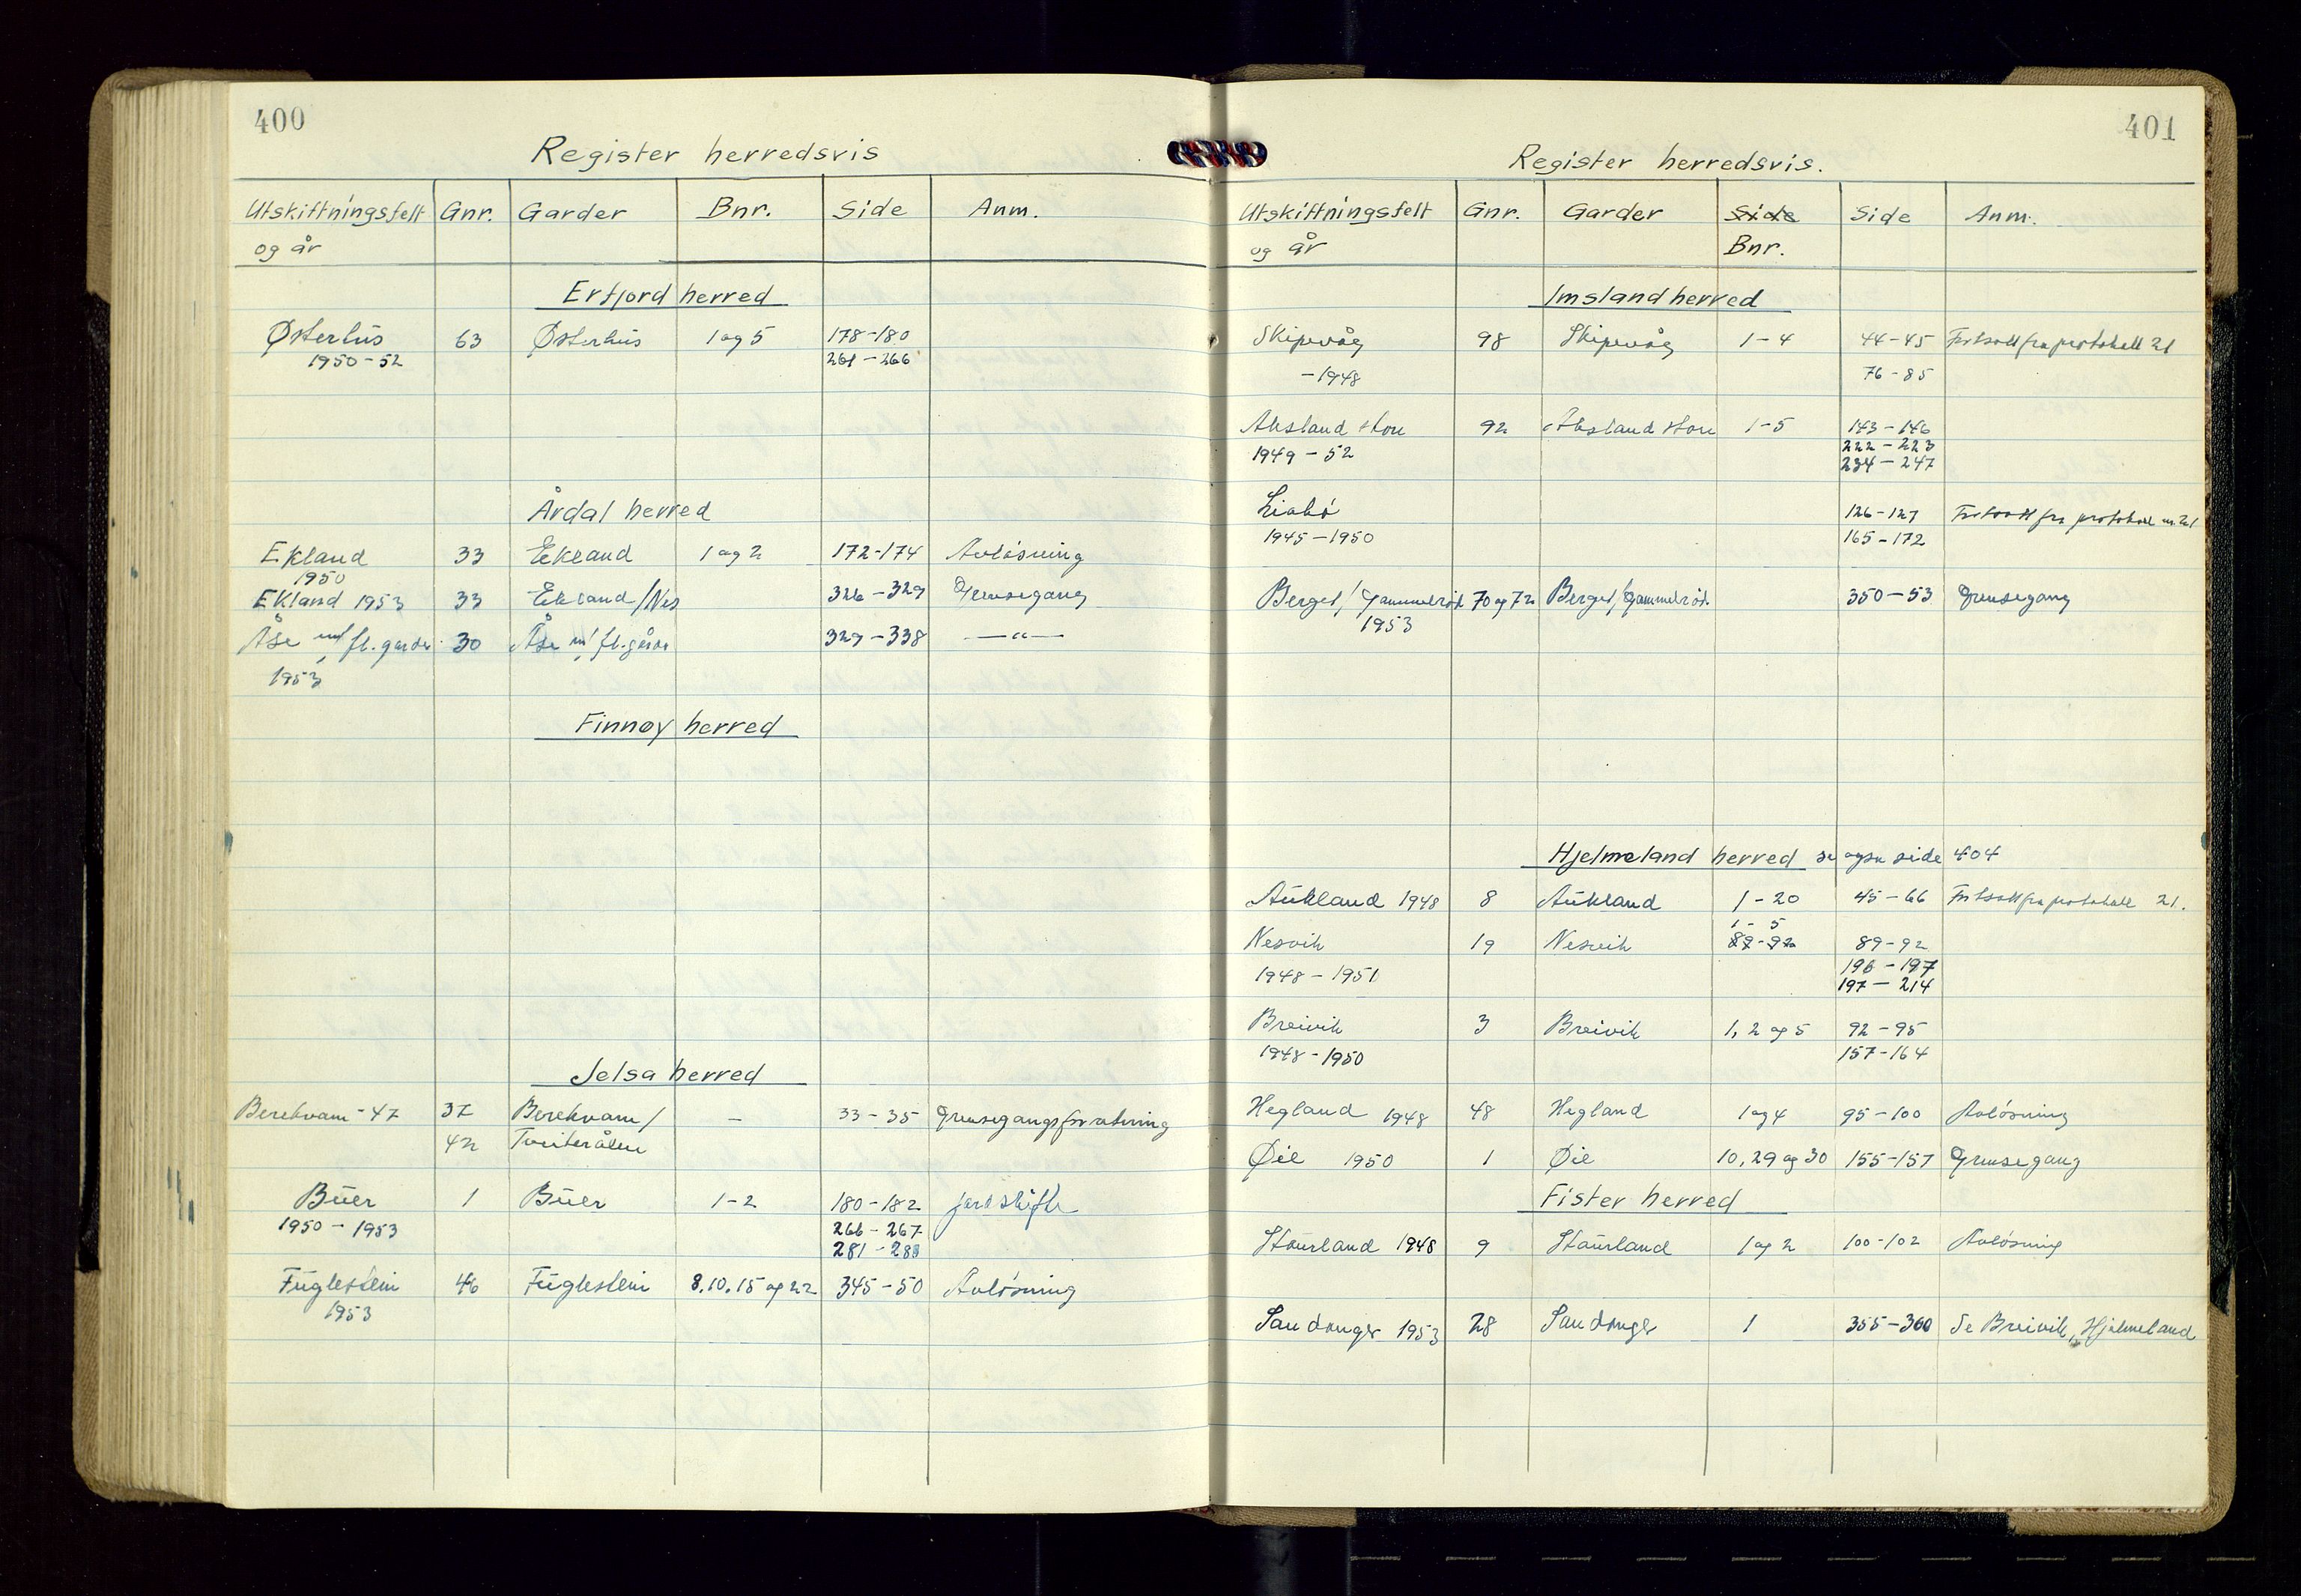 400
Register herredsvis
Utskiftningsfelt og år Gnr. Garder Bnr. Side Anm.
Erfjord herred
Østerhüs 63 Østerhüs 1 og 5 178-180
1950-52 261-266
Årdal herred
Ekland 33 Ekland 1 og 2 172-174 Avløsning
1950
Ekland 1953 33 Ekland/Nes 326-329 Grensegang
Åse m/ fl. garder 30 Åse m/ fl. gårder 329-338 —"—
1953
Finnøy herred
Jelsa herred
Berekvam -47 37 Berekvam/ - 33-35
42
Büer 1 Büer 1-2 180-182 jordskifte
1950-1953 266-267
281-288
Füglestein 46 Füglestein 8.10.15 og 22 345-50 Avløsning
1953
401
Register herredsvis.
Utskiftningsfelt og år Gnr. Garder Side Bnr. Side Anm.
Imsland herred
Skipevåg 98 Skipevåg 1-4 44-45 Fortsatt fra protokoll 21
-1948 76-85
Aksland store 92 Aksland store 1-5 143-146
1949-52 222-223
234-247
Liabø 126-127 Fortsatt fra protokoll nr. 21
1945-1950 165-172
Berget/Gammelrød 70 og 72 Berget/Gammelrød 350-53 Grensegang
1953
Hjelmeland herred se også side 404
Aükland 1948 8 Aükland 1-20 45-66 Fortsatt fra protokoll 21.
1-5
Nesvik 19 Nesvik 89-92 89-92
1948-1951 196-197
197-214
Breivik 3 Breivik 1, 2 og 5 92-95
1948-1950 157-164
Hegland 1948 48 Hegland 1 og 4 95-100 Avløsning
Øie 1950 1 Øie 10, 29 og 30 155-157 Grensegang
Fister herred
Staürland 1948 9 Staürland 1 og 2 100-102 Avløsning
Sandanger 1953 28 Sandanger 1 355-360 Se Breivik, Hjelmeland